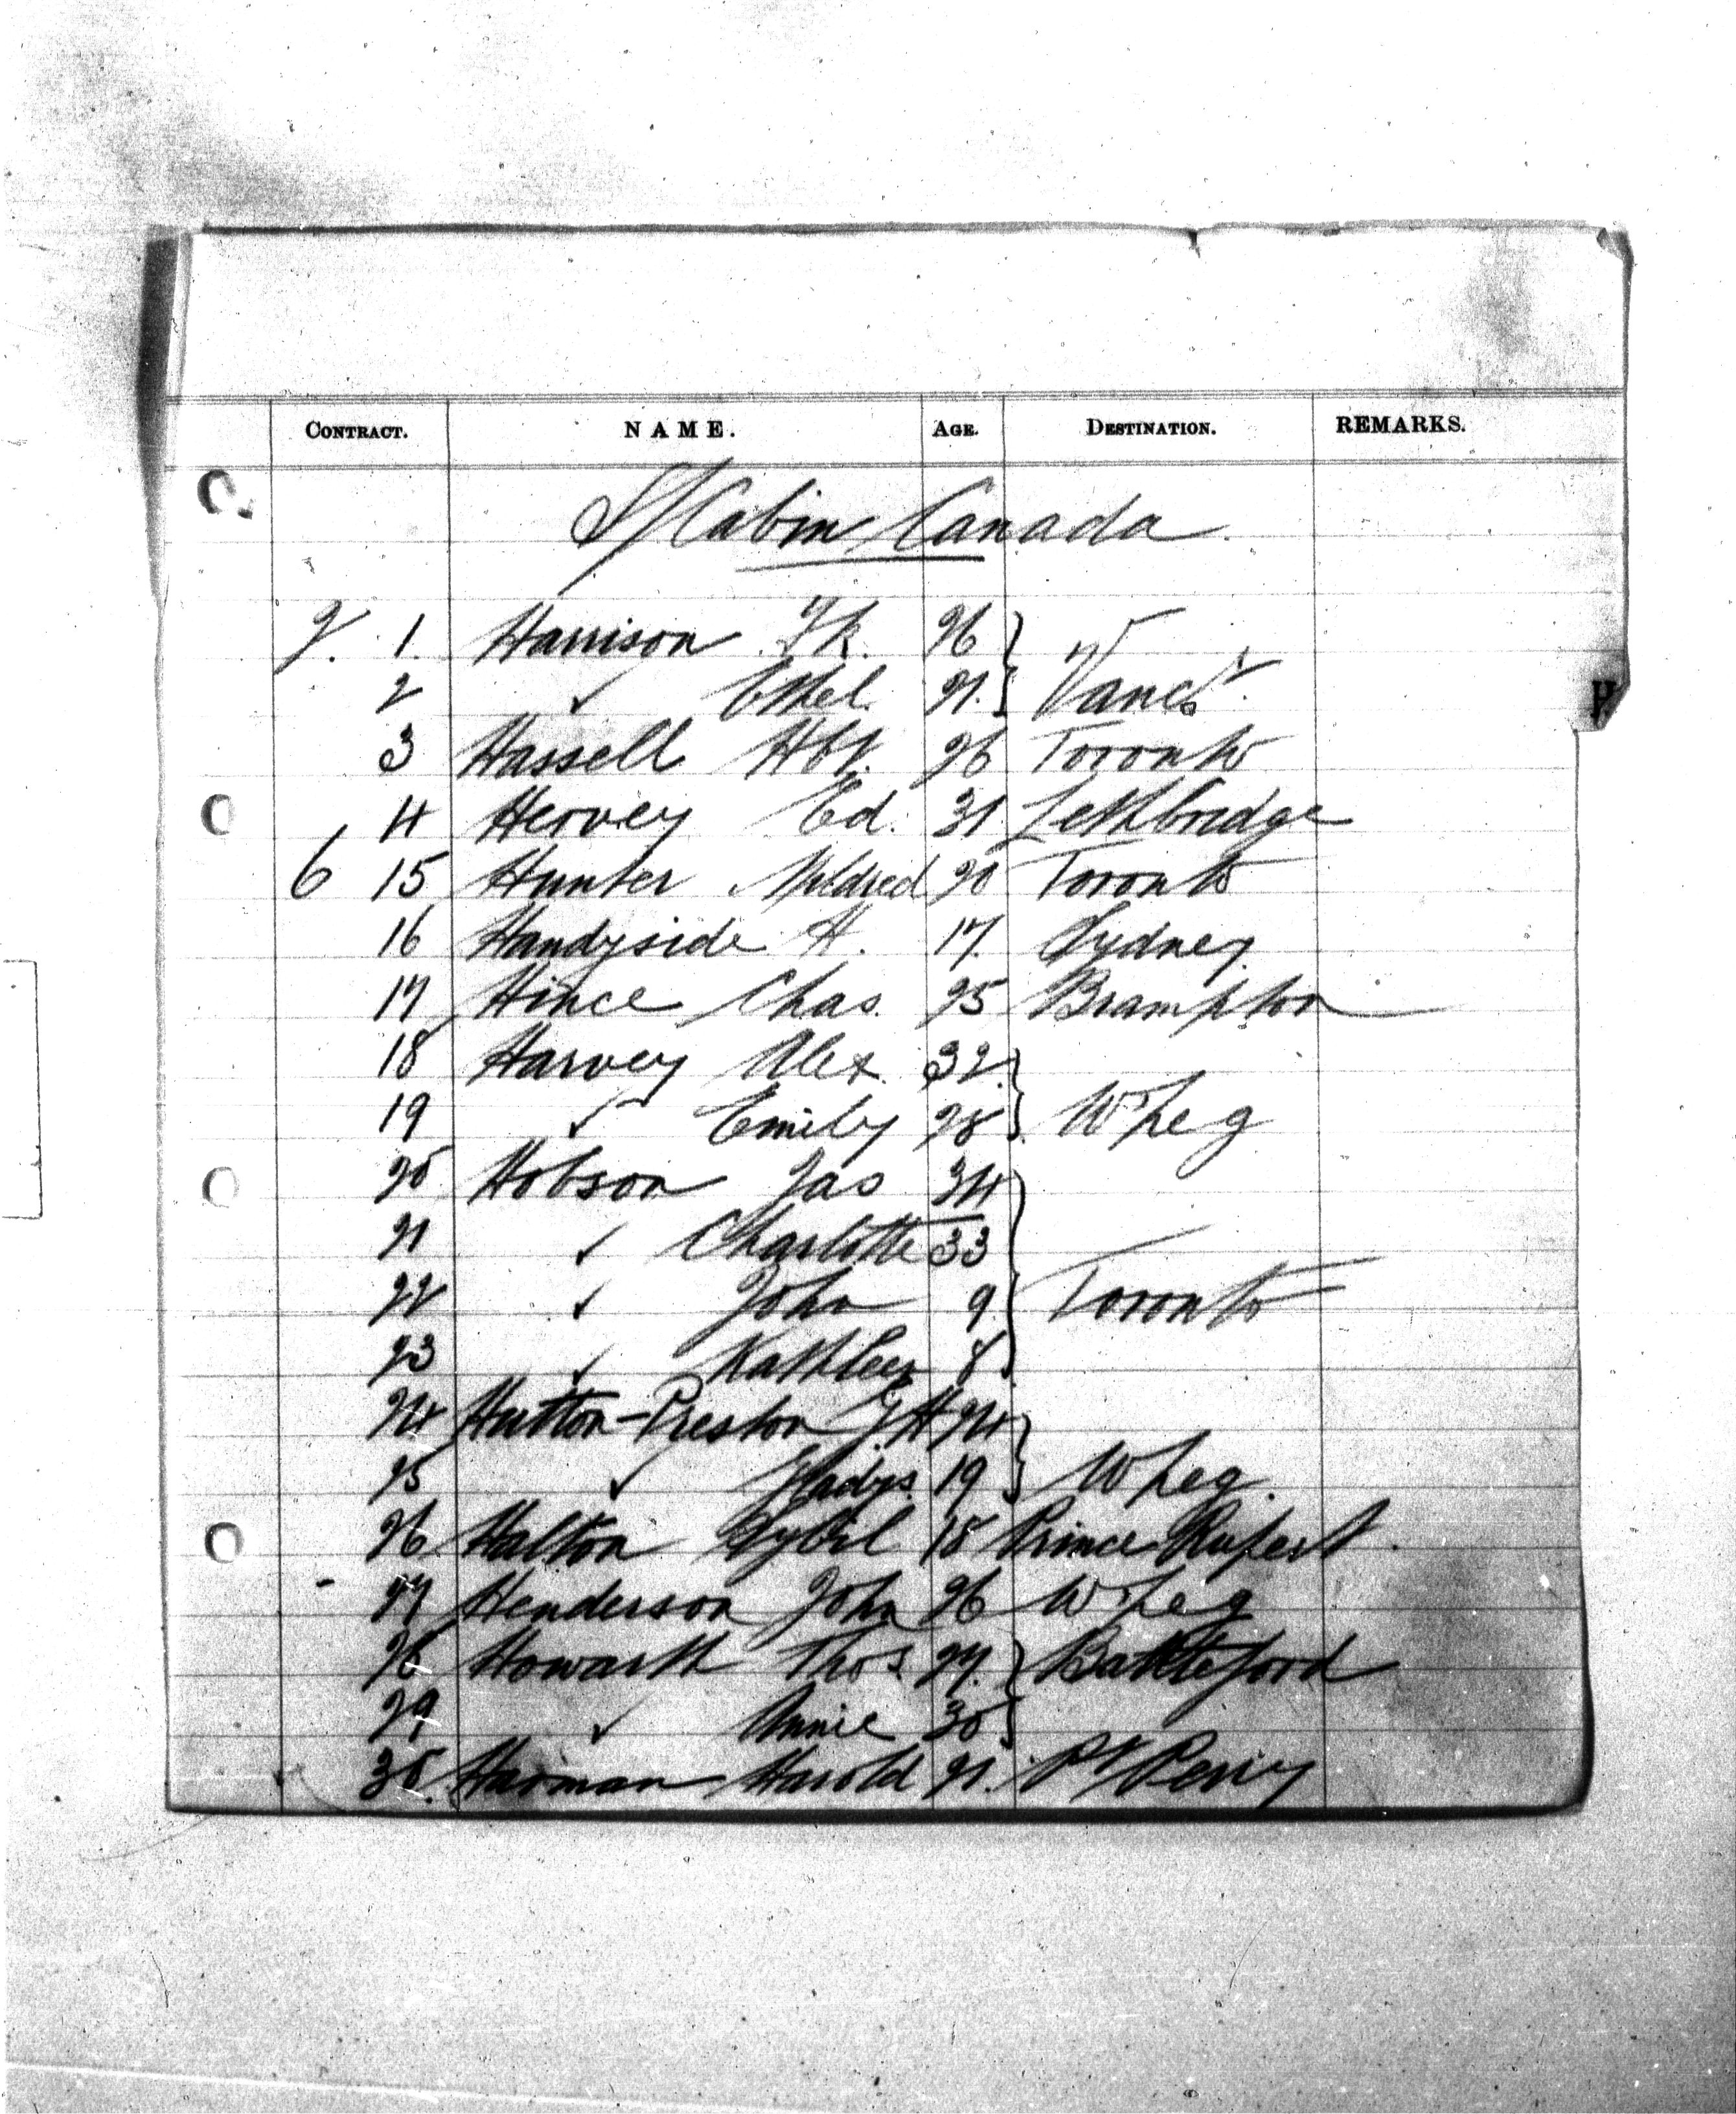 CONTRACT. NAME. AGE. DESTINATION. REMARKS.
S/Cabin Canada
2. 1. Harrison Fk. 26
2 ✓ Ethel. 21. Vancr.
3 Hassell Hbt. 26 Toronto
4 Hervey Ed. 31 Lethbridge
6 15 Hunter Mildred 20 Toronto
16 Handyside H. 17. Sydney
17 Hince Chas. 25 Brampton
18 Harvey Alex. 32
19 ✓ Emily 28 W'peg
20 Hobson Jas 34
21 ✓ Charlotte 33
22 ✓ John 9 Toronto
23 ✓ Kathleen 8
24 Hutton-Preston 24
25 ✓ Gladys. 19 W'peg.
26 Halton Sybil 18 Prince Rupert.
27 Henderson John 26 W'peg
28 Howarth Thos. 27. Battleford
29 ✓ Annie 30
30. Harman Harold 21. Pt Perry
H